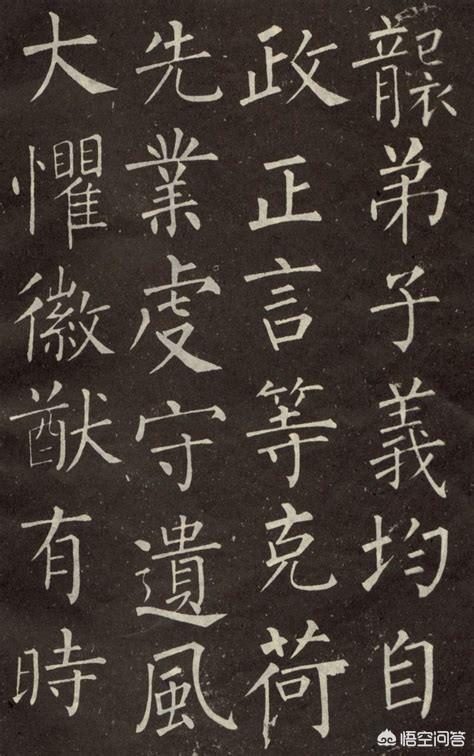 襲弟子義均自
政正言等克荷
先業虔守遺風
大懼徽猷有時
悟空问答